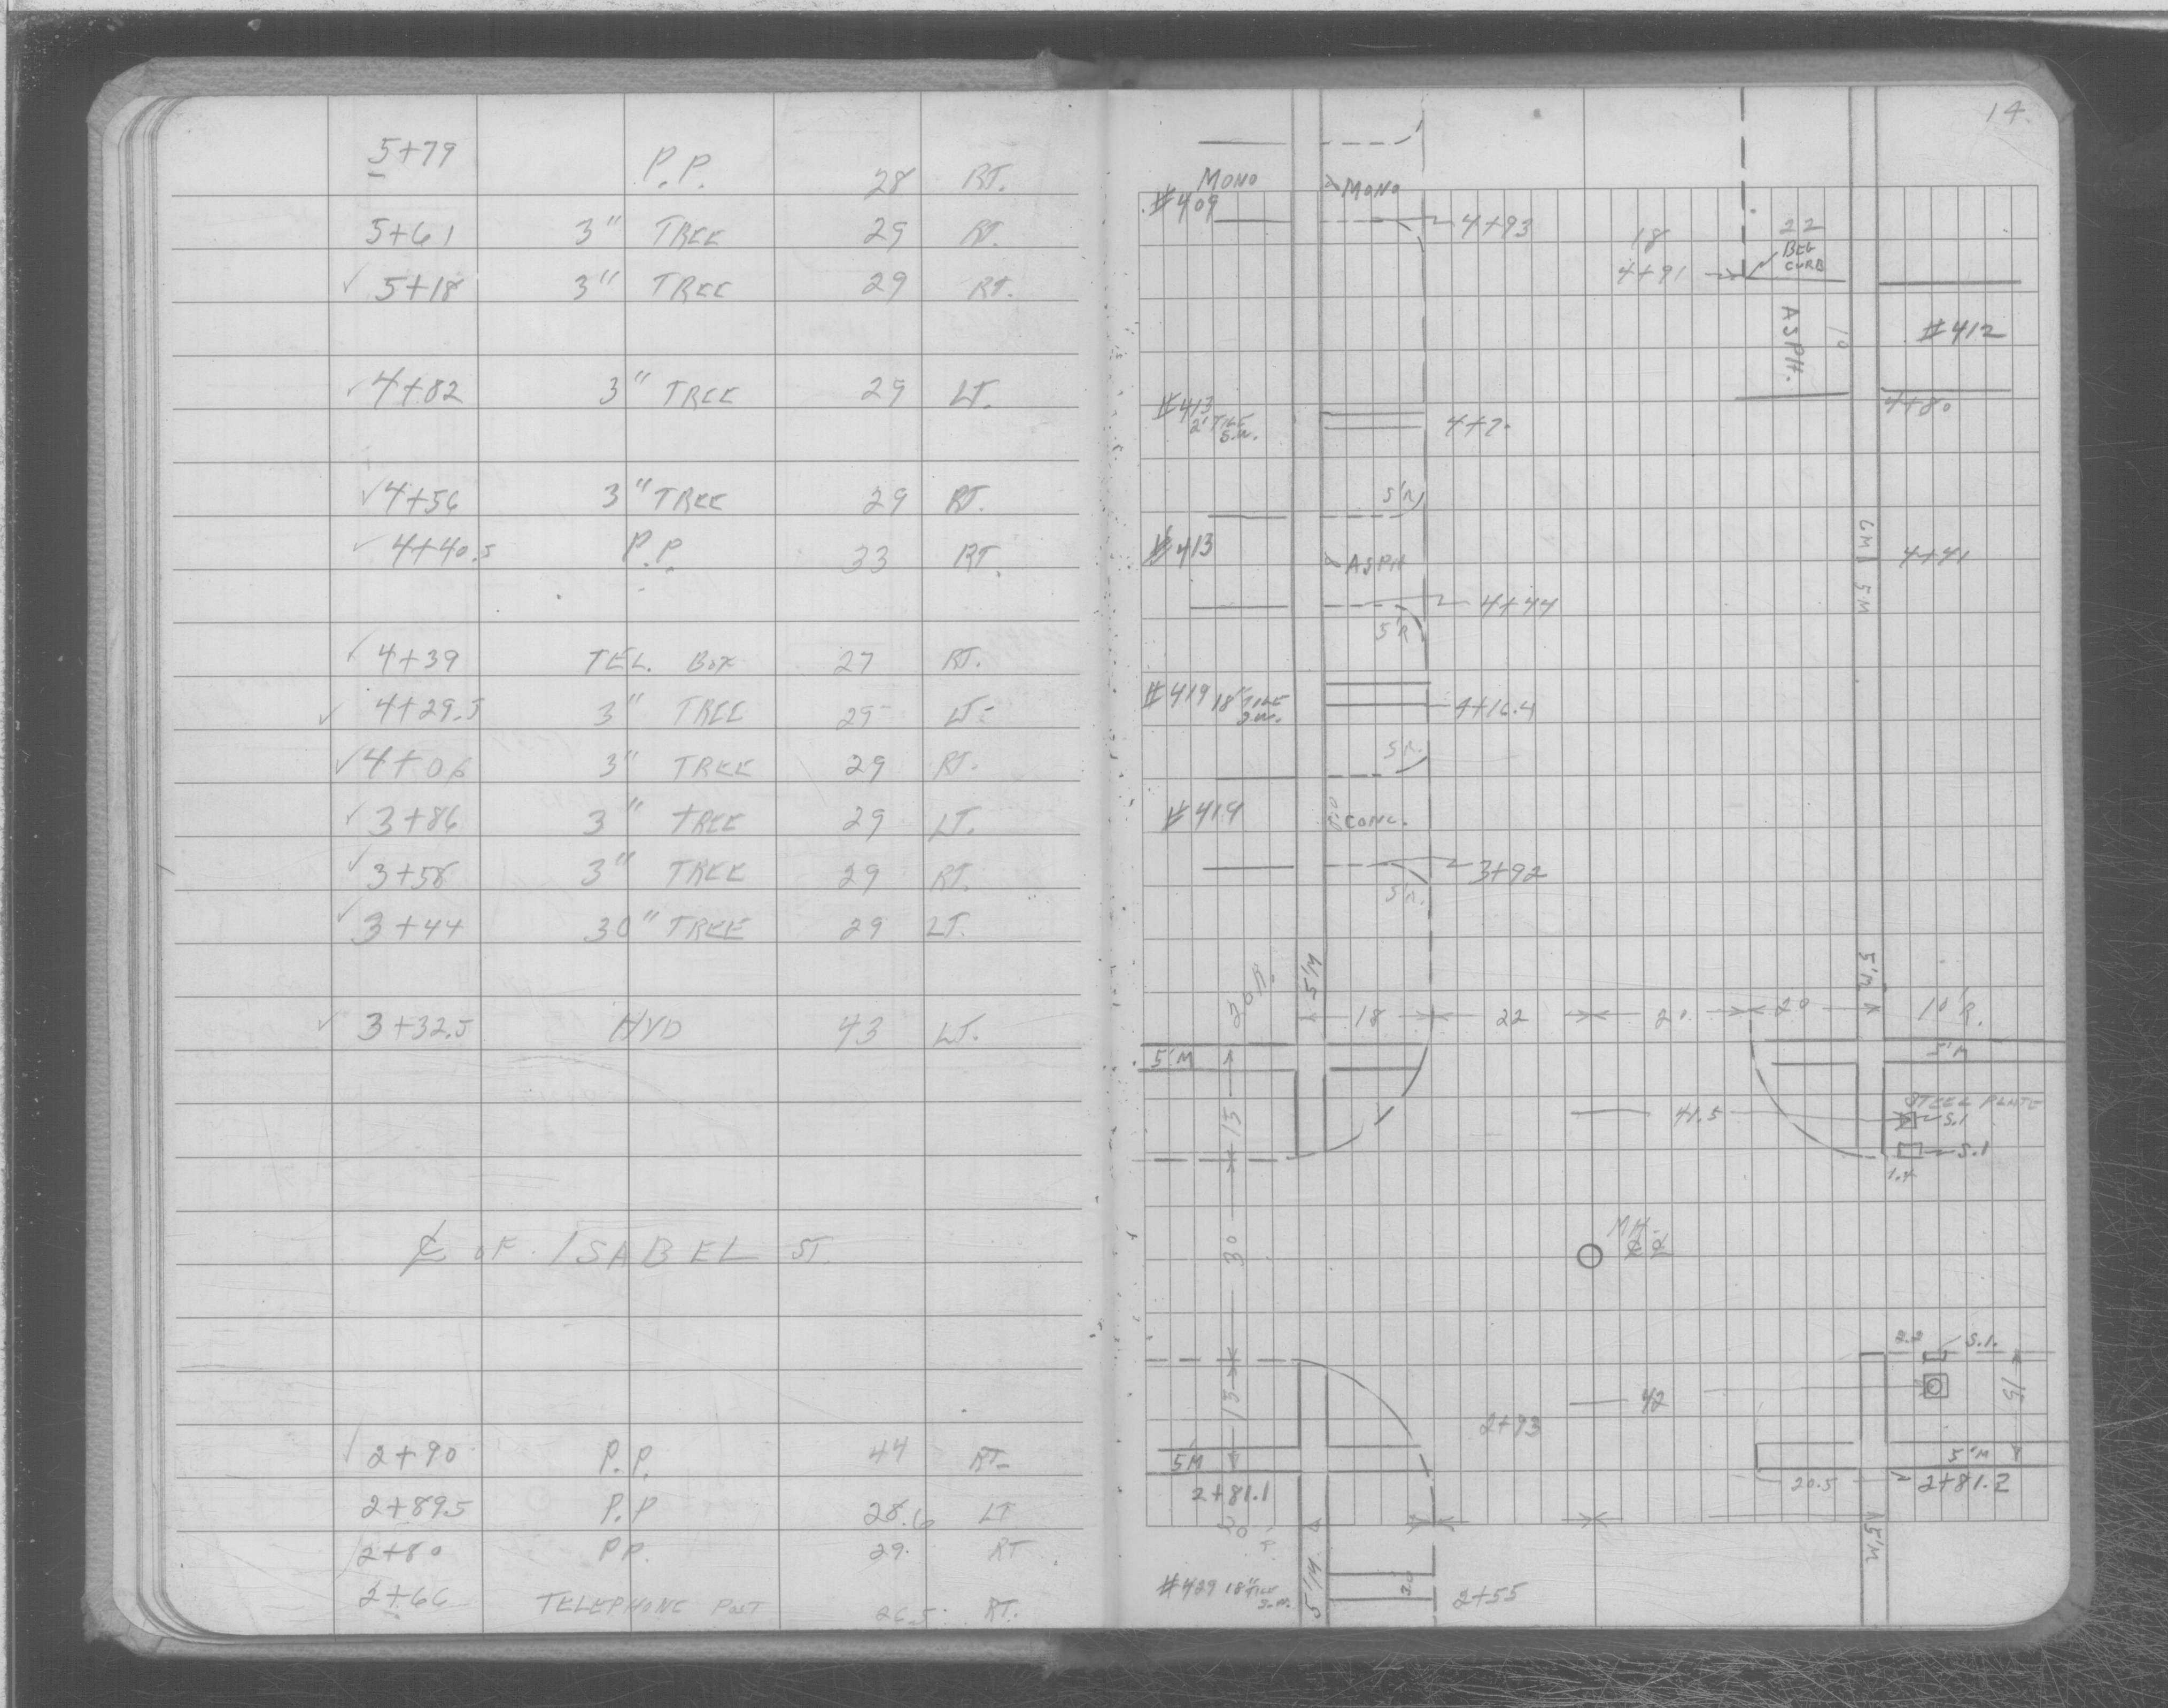 5+79 P.P. 28 RT.
5+61 3" TREE 29 RT.
✓ 5+18 3" TREE 29 RT.
✓ 4+82 3" TREE 29 LT.
✓ 4+56 3" TREE 29 RT.
✓ 4+40.5 P.P. 33 RT.
✓ 4+39 TEL. BOX 27 RT.
✓ 4+29.5 3" TREE 29 LT.
✓ 4+06 3" TREE 29 RT.
✓ 3+86 3" TREE 29 LT.
✓ 3+58 3" TREE 29 RT.
✓ 3+44 30" TREE 29 LT.
✓ 3+32.5 HYD 43 LT.
℄ OF ISABEL ST.
✓ 2+90 P.P. 44 RT.
2+89.5 P.P 28.6 LT
2+80 P.P. 29. RT
2+66 TELEPHONE POST 26.5 RT.
14.
MONO MONO
#409 4+93 18 22
4+91 BEG CURB
ASPH. 10 #412
#413 2' TILE S.W. 4+80
5'R
#413 ASPH 6'M 5'M 4+41
4+44
5'R
#419 18" TILE S.W. 4+16.4
5'R.
#419 CONC.
3+92
5'R.
20'R. 5'M 5'M
18 22 20 20 10'R.
5'M 5'M
15 41.5 STEEL PLATE
S.I
S.I
1.4
30 MH
℄ ℄
2.2 S.I.
15 42 15
2+93
5'M 5'M
2+81.1 20.5 2+81.2
20
#429 18" TILE S.W. 5'M 20 2+55 5'M